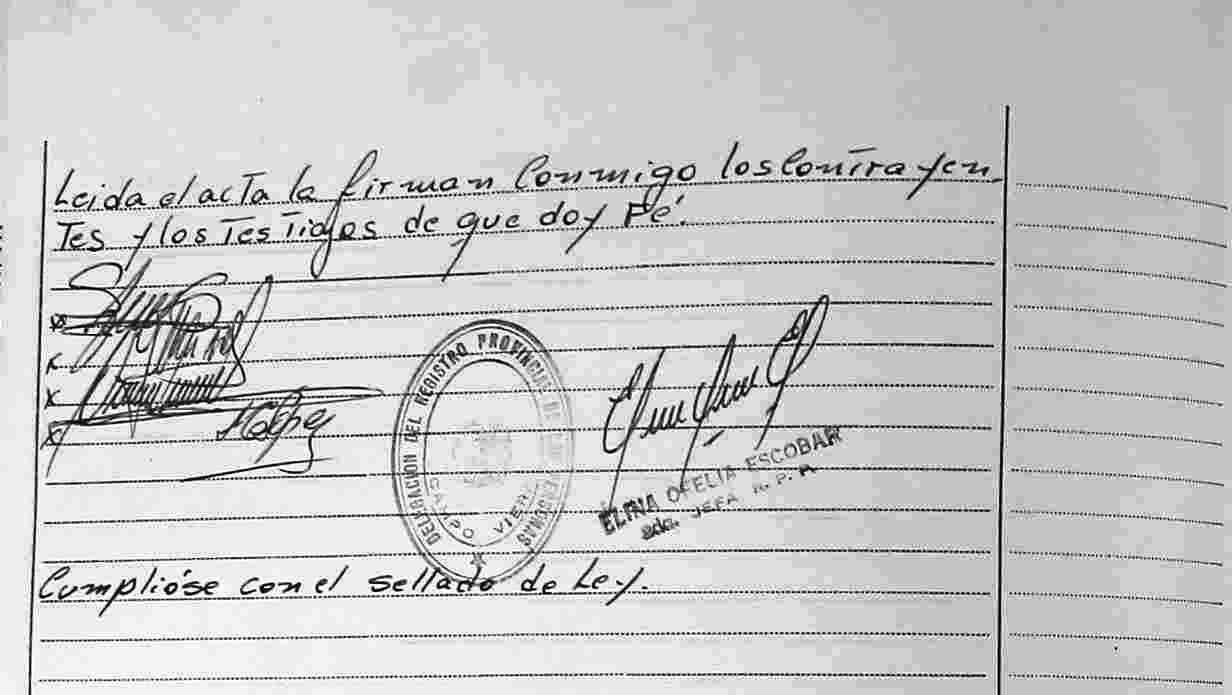 Leida el acta la firman Conmigo los Contrayen
tes y los Testigos de que doy Fé.
DELEGACION DEL REGISTRO PROVINCIAL DE LAS PERSONAS
CATRIEL VIEJO
ELINA OFELIA ESCOBAR
2da. JEFA R. P. P.
Cumplióse con el sellado de Ley.